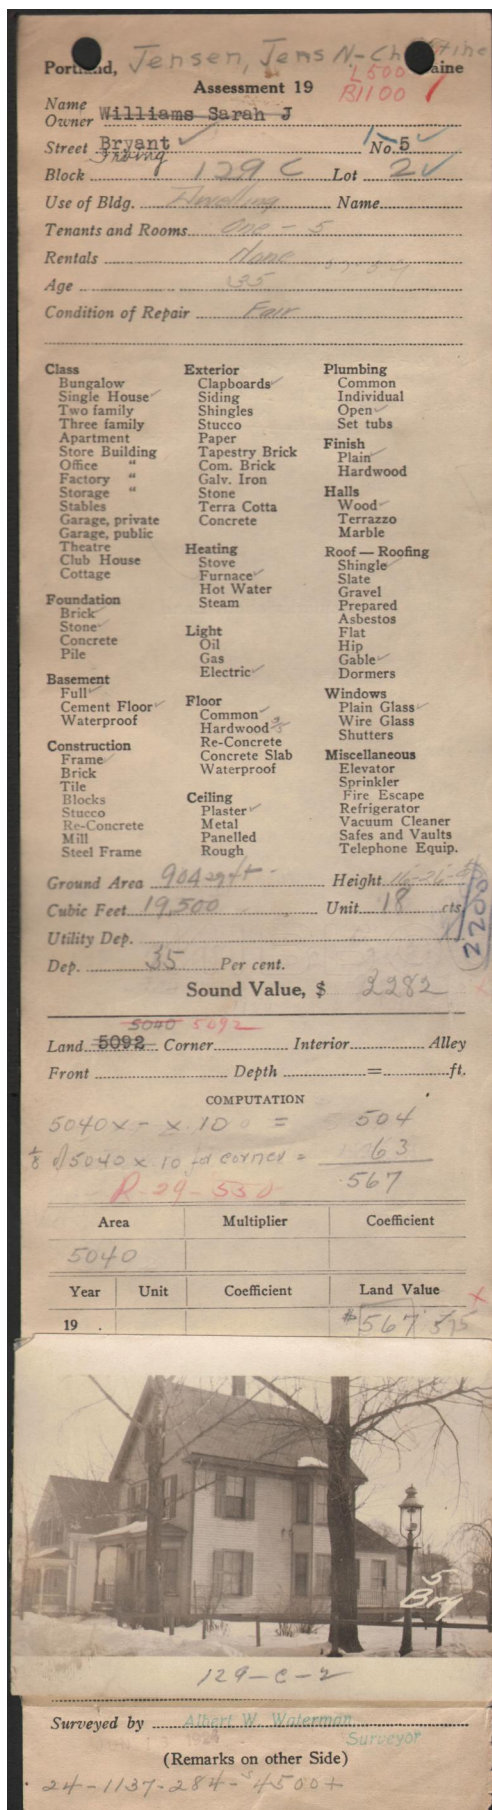 Portland, Maine
Jensen, Jens N-Christine
L 500
B1100
Assessment 19
Name
Owner Williams Sarah J
Street Bryant No. 5
Irving
Block 129 C Lot 2
Use of Bldg. Dwelling Name
Tenants and Rooms One - 5
Rentals None
Age 35
Condition of Repair Fair
Class
Bungalow
Single House ✓
Two family
Three family
Apartment
Store Building
Office "
Factory "
Storage "
Stables
Garage, private
Garage, public
Theatre
Club House
Cottage
Foundation
Brick ✓
Stone ✓
Concrete
Pile
Basement
Full ✓
Cement Floor ✓
Waterproof
Construction
Frame ✓
Brick
Tile
Blocks
Stucco
Re-Concrete
Mill
Steel Frame
Exterior
Clapboards ✓
Siding
Shingles
Stucco
Paper
Tapestry Brick
Com. Brick
Galv. Iron
Stone
Terra Cotta
Concrete
Heating
Stove
Furnace ✓
Hot Water
Steam
Light
Oil
Gas
Electric ✓
Floor
Common ✓
Hardwood
Re-Concrete
Concrete Slab
Waterproof
Ceiling
Plaster ✓
Metal
Panelled
Rough
Plumbing
Common
Individual
Open ✓
Set tubs
Finish
Plain ✓
Hardwood
Halls
Wood ✓
Terrazzo
Marble
Roof — Roofing
Shingle ✓
Slate
Gravel
Prepared
Asbestos
Flat
Hip
Gable ✓
Dormers
Windows
Plain Glass ✓
Wire Glass
Shutters
Miscellaneous
Elevator
Sprinkler
Fire Escape
Refrigerator
Vacuum Cleaner
Safes and Vaults
Telephone Equip.
Ground Area 904 sq ft - Height 16-26
Cubic Feet 19,500 Unit 18 cts.
2200
Utility Dep.
Dep. 35 Per cent.
Sound Value, $ 2282
5040 5092
Land 5092 Corner Interior Alley
Front Depth = ft.
COMPUTATION
5040 x - x .10 = 504
1/8 of 5040 x .10 for corner = 63
R-29-550 567
Area Multiplier Coefficient
5040
Year Unit Coefficient Land Value
19 . $567 575
5
Bry
129-C-2
Surveyed by Albert W. Waterman
Surveyor
(Remarks on other Side)
24-1137-284-$4500+